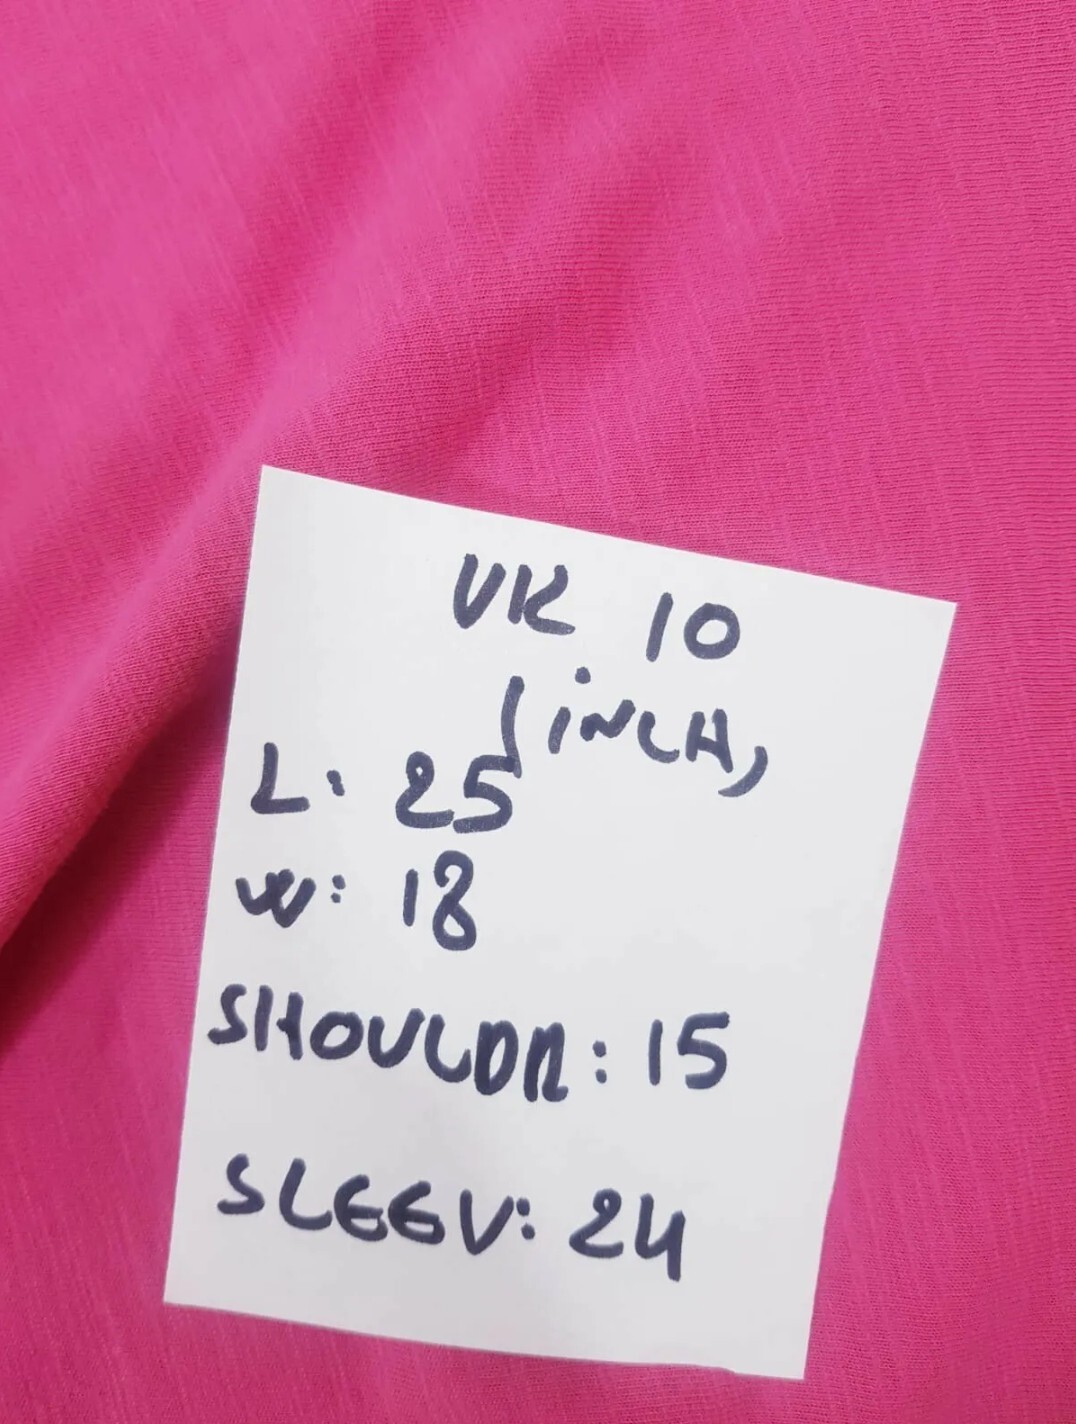 UK 10
(iNCH)
L: 25
W: 18
SHOULDR: 15
SLEEV: 24